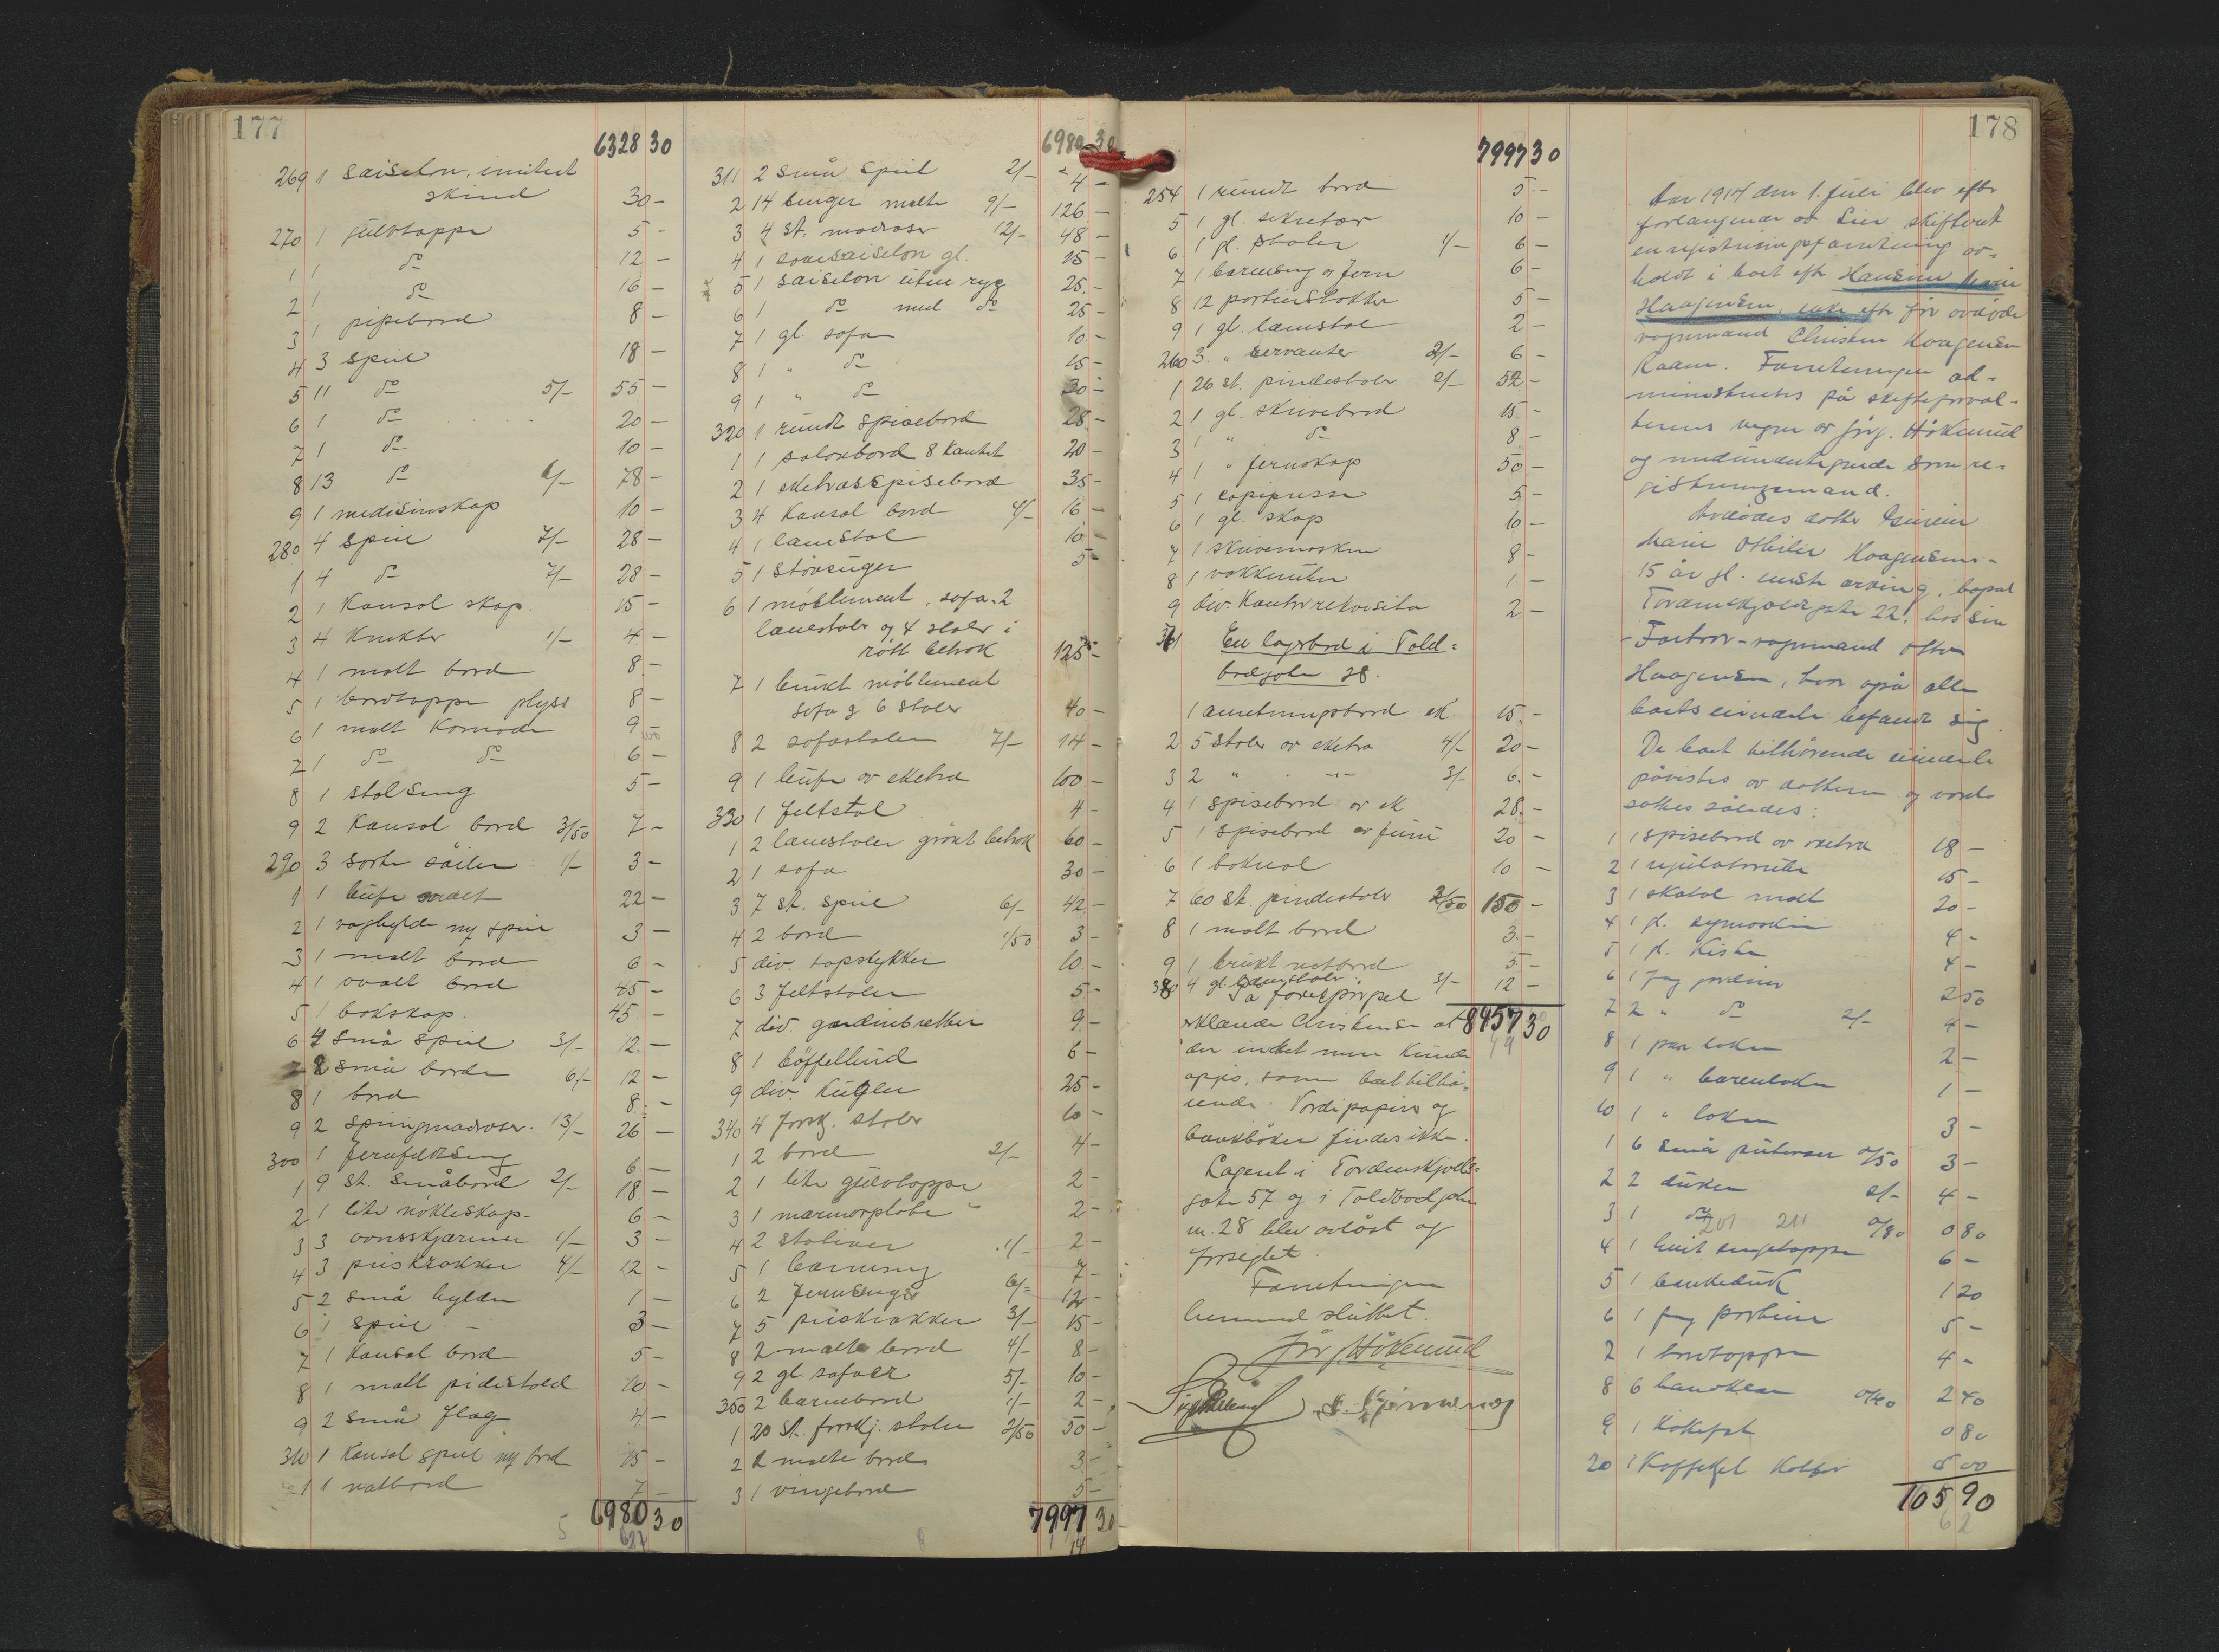 177
6328 30
269 1 Saiselon, imitert
skind 30 -
270 1 gulvteppe 5 -
1 1 do 12 -
2 1 do 16 -
3 1 pipebord 8 -
4 3 Speil 18 -
5 11 do 5/- 55 -
6 1 do 20 -
7 1 do 10 -
8 13 do 6/- 78 -
9 1 medisinskap 10 -
280 4 Speil 7/- 28 -
1 4 do 7/- 28 -
2 1 Konsol skap 15 -
3 4 Knekter 1/- 4 -
4 1 malt bord 8 -
5 1 bordteppe plyss 8 -
6 1 malt Komode 9 -
7 1 do do 6 -
8 1 stolseng 5 -
9 2 Konsol bord 3/50 7 -
290 3 sorte söiler 1/- 3 -
1 1 bufe malt 22 -
2 1 vaghylde ny speil 3 -
3 1 malt bord 6 -
4 1 ovalt bord 45 -
5 1 bokskap 45 -
6 4 Små speil 3/- 12 -
7 2 små borde 6/- 12 -
8 1 bord 8 -
9 2 springmadrasser 13/- 26 -
300 1 Jernfeltseng 6 -
1 9 st. Småbord 2/- 18 -
2 1 lite nökleskap 6 -
3 3 ovnsskjærmer 1/- 3 -
4 3 puskrakker 4/- 12 -
5 2 små hylder 1 -
6 1 speil 3 -
7 1 Konsol bord 5 -
8 1 malt pidestold 10 -
9 2 små flag 4 -
310 1 Konsol speil m/ bord 15 -
1 1 natbord 7 -
6980 30
6980 30
311 2 små Speil 2/- 4 -
2 14 senger malte 9/- 126 -
3 4 st. madraser 12/- 48 -
4 1 saiselon gl. 15 -
5 1 Saiselon uten ryg 25 -
6 1 do med do 25 -
7 1 gl. sofa 10 -
8 1 " do 15 -
9 1 " do 20 -
320 1 rundt spisebord 28 -
1 1 salonbord 8 Kantet 20 -
2 1 eketræsspisebord 35 -
3 4 Konsol bord 4/- 16 -
4 1 lænestol 10 -
5 1 Stövsuger 5 -
6 1 möblement, sofa, 2
lænestoler og 4 stoler i
rött betræk 125 -
7 1 brukt möblement
sofa og 6 stoler 40 -
8 2 sofastoler 7/- 14 -
9 1 bufe av eketræ 100 -
330 1 feltstol 4 -
1 2 lænestoler grönt betræk 60 -
2 1 sofa 30 -
3 7 st. speil 6/- 42 -
4 2 bord 1/50 3 -
5 div. topstykker 10 -
6 3 feltstoler 5 -
7 div. gardinbretter 9 -
8 1 böffellud 6 -
9 div. Kugler 25 -
340 4 forskj. stoler 10 -
1 2 bord 2/- 4 -
2 1 lite gulvteppe 2 -
3 1 marmorplate 2 -
4 2 stativer 1/- 2 -
5 1 barneseng 7 -
6 2 Jernsenger 6/- 12 -
7 5 puskrakker 3/- 15 -
8 2 malte bord 4/- 8 -
9 2 gl sofaer 5/- 10 -
350 2 barnebord 1/- 2 -
1 20 st. forskj. stoler 2/50 50 -
2 2 malte bord 3 -
3 1 vingebord 5 -
7997 30
7997 30
254 1 rundt bord 5 -
5 1 gl. sekretær 10 -
6 1 gl. stoler 6 -
7 1 barneseng av Jern 6 -
8 12 portierstokker 5 -
9 1 gl. lænestol 2 -
260 3 " servanter 2/- 6 -
1 26 st. pindestoler 2/- 52 -
2 1 gl. skrivebord 15 -
3 1 " do 8 -
4 1 " jernskap 50 -
5 1 copipresse 5 -
6 1 gl. skap 10 -
7 1 skrivemaskin 8 -
8 1 vækkeruhr 1 -
9 div. Kontorrekvisita 2 -
En lagerbod i Told-
bodgaten 28.
1 anretningsbord ek. 15 -
2 5 Stoler av eketræ 4/- 20 -
3 2 " - " - 3/- 6 -
4 1 spisebord av ek 28 -
5 1 Spisebord av furu 20 -
6 1 bokreol 10 -
7 60 st. pindestoler 2/50 150 -
8 1 malt bord 3 -
9 1 brukt natbord 5 -
4 gl. lænestoler 3/- 12 -
8457 30
På forespörgsel
erklærede Christensen at
der intet mere kunde
opgis, som boet tilhö-
rende. Verdipapirer og
bankböker findes ikke.
Lageret i Tordenskjolds-
gate 57 og i Toldbodgaten
nr. 28 blev avlåst og
forseglet.
Forretningen
hermed sluttet.
Jörg. Håkerud
178
Aar 1914 den 1. Juli blev efter
forlangende av Lier skifteret
en registreringsforretning av-
holdt i boet efter Hansine Marie
Haagensen, enke efter för avdöde
vognmand Christen Haagensen
Kaarn. Forretningen ad-
ministreres på skifteforval-
terens vegne av Jörg. Håkerud
og nedennevnte som re-
gistreringsmand.
Avdödes datter
Marie Othilie Haagensen
15 år gl. eneste arving, bopæl
Tordenskjoldsgate 22, hos sin
Farbror vognmand
Haagensen, hvor også alle
boets eiendele befandt sig.
De boet tilhörende eiendele
påvistes av datteren og verd-
sattes således:
1 1 spisebord av eketræ 18 -
2 1 regulatoruhr 15 -
3 1 skatol malt 20 -
4 1 gl. symaskin 4 -
5 1 gl. Kiste 4 -
6 1 fag gardiner 2 50
7 2 " do 2/- 4 -
8 1 par laken 2 -
9 1 " barnelaken 1 -
10 1 " laken 3 -
1 6 små putevar 0/50 3 -
2 2 duker 2/- 4 -
3 1 do 0/80 0 80
201 211
4 1 hvit sengeteppe 6 -
5 1 1 20
6 1 fag portiere 5 -
7 1 bordteppe 4 -
8 6 handklær 0/40 2 40
9 1 Kokefat 0 80
20 1 Kaffekjel Kobber 5 00
105 90
62